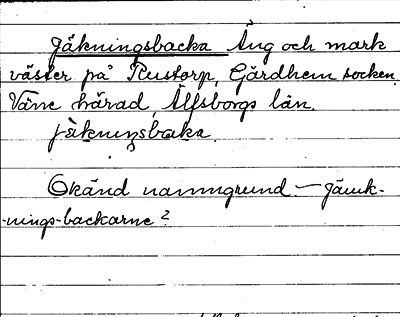 Jäkningsbacka Äng och mark
väster på Rustorp, Gärdhem socken
Väne härad, Älfsborgs län.
jäkningsbaka
Okänd namngrund – Jämk-
nings-backarne?